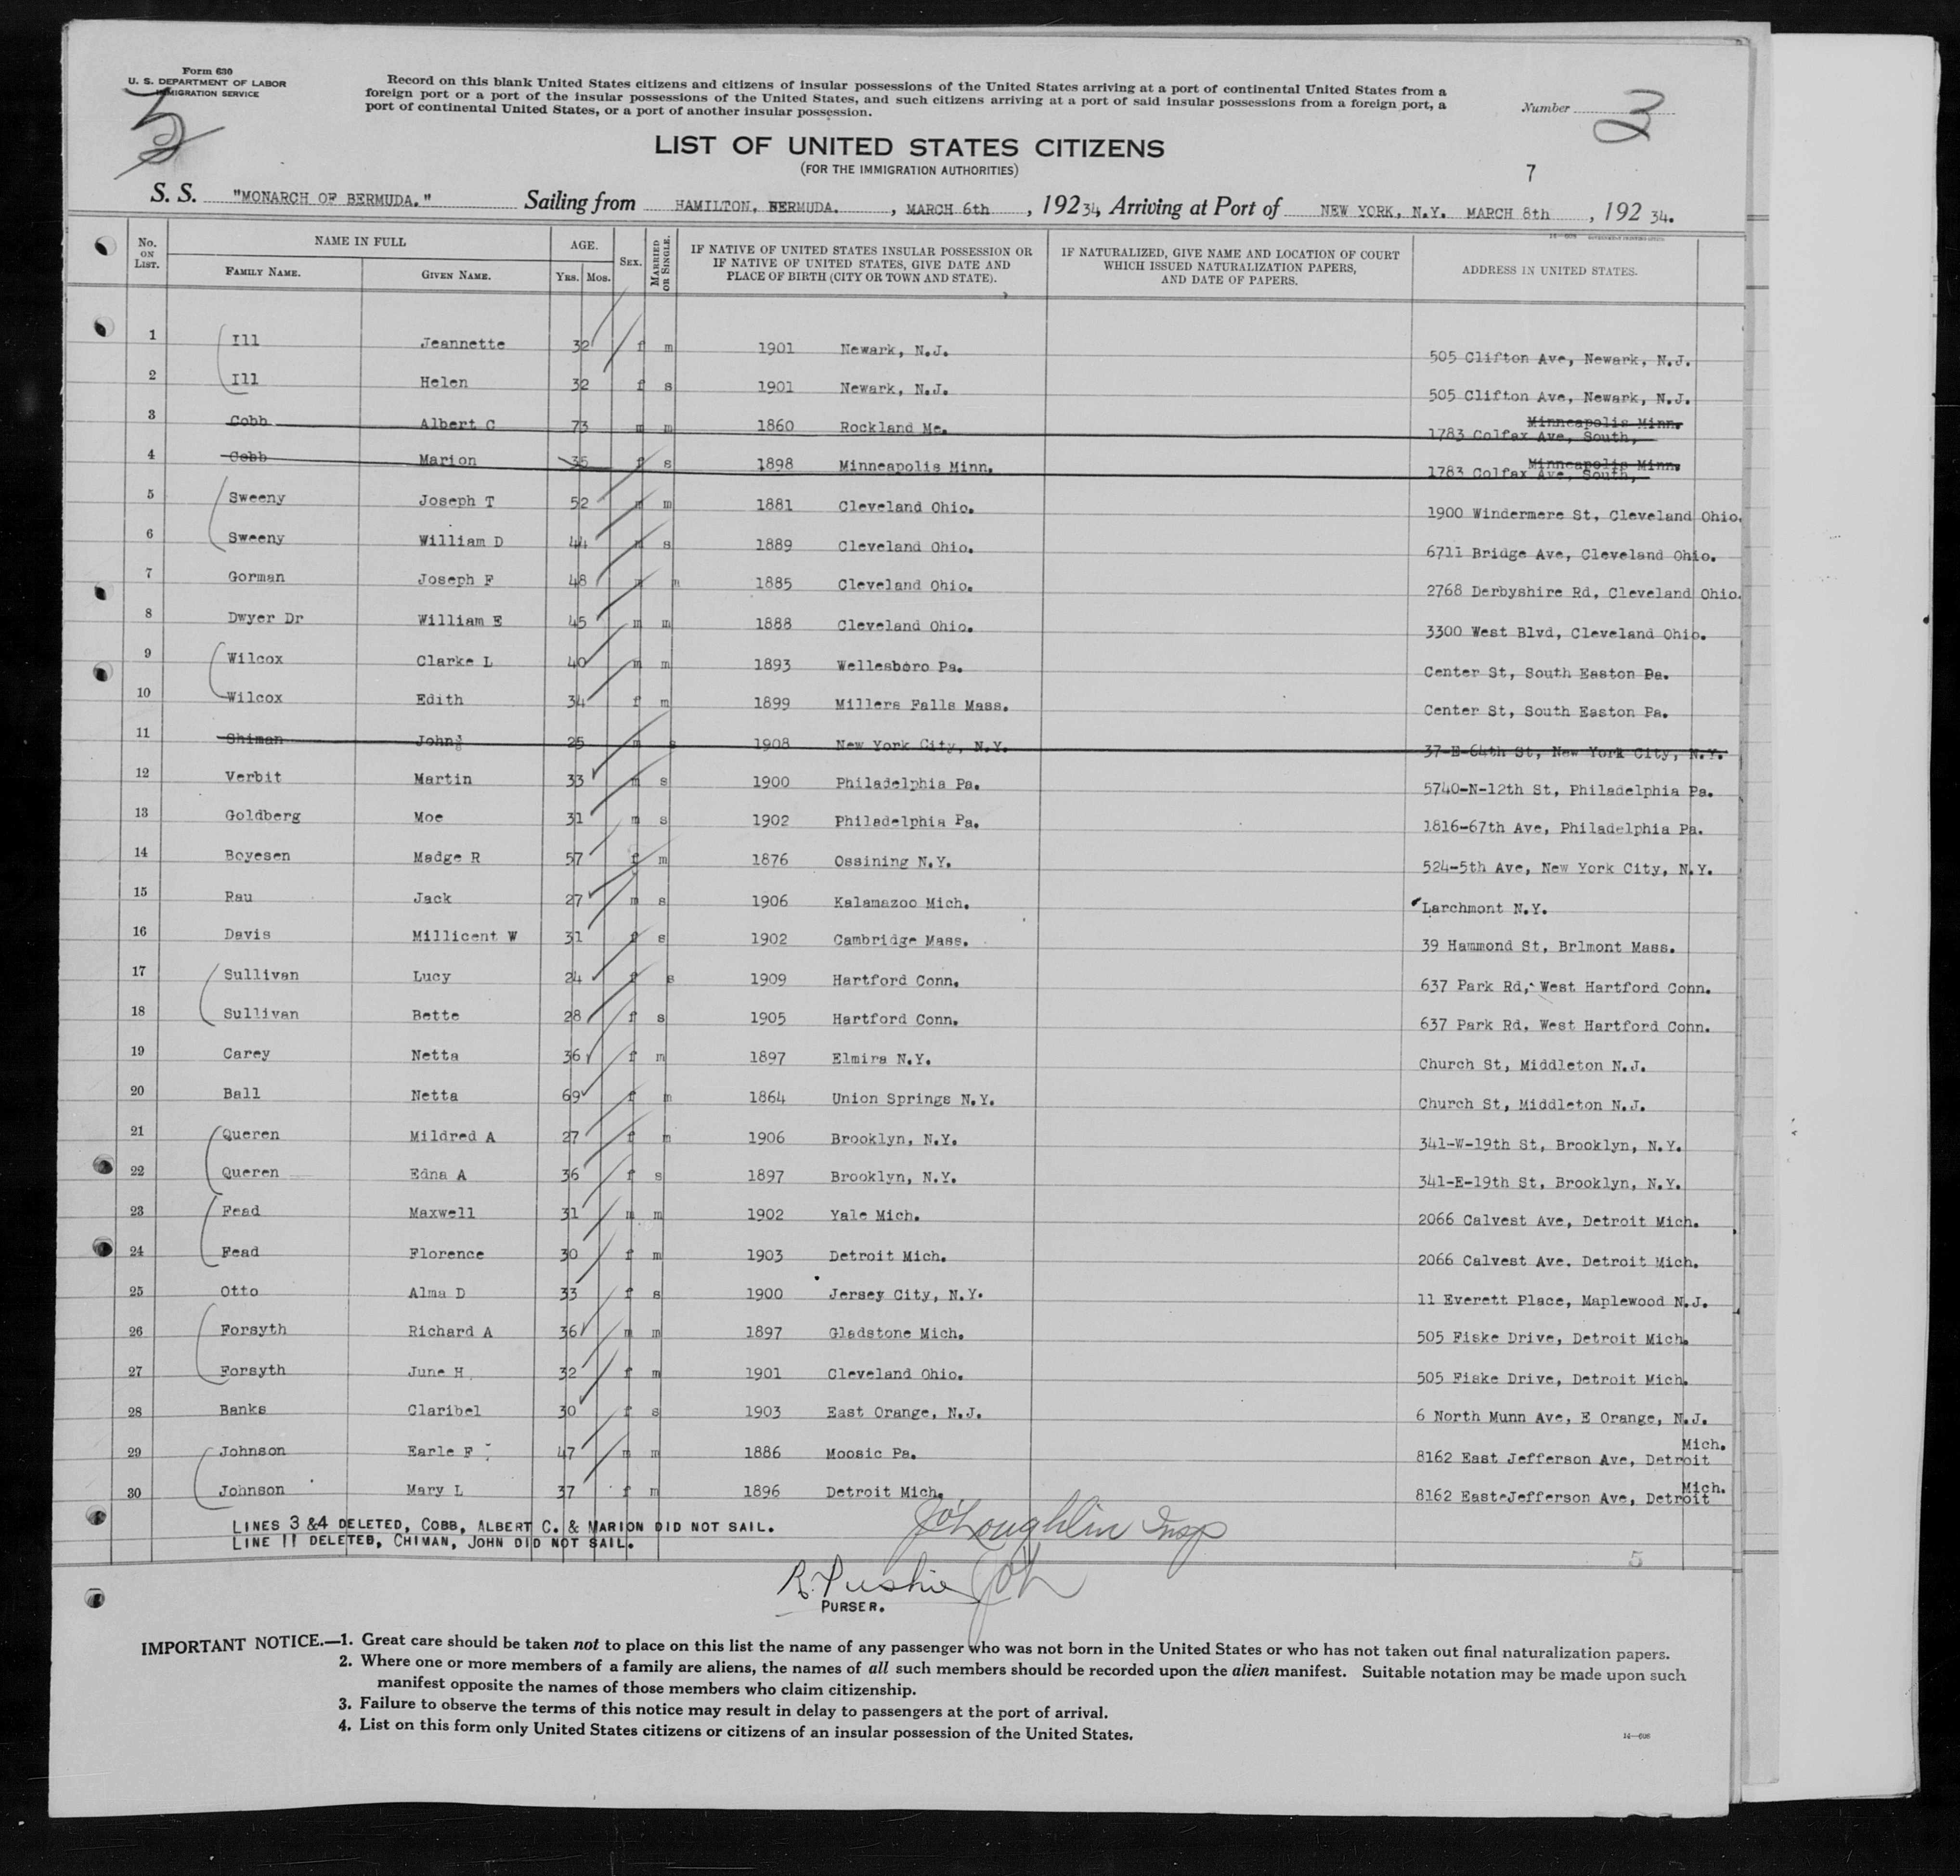 Form 630
U. S. DEPARTMENT OF LABOR
IMMIGRATION SERVICE
Record on this blank United States citizens and citizens of insular possessions of the United States arriving at a port of continental United States from a
foreign port or a port of the insular possessions of the United States, and such citizens arriving at a port of said insular possessions from a foreign port, a
port of continental United States, or a port of another insular possession.
Number 3
LIST OF UNITED STATES CITIZENS
(FOR THE IMMIGRATION AUTHORITIES)
7
S. S. "MONARCH OF BERMUDA." Sailing from HAMILTON, BERMUDA. , MARCH 6th , 192 34, Arriving at Port of NEW YORK, N.Y. MARCH 8th , 192 34.
No. ON LIST. NAME IN FULL FAMILY NAME. GIVEN NAME. AGE. YRS. MOS. SEX. MARRIED OR SINGLE. IF NATIVE OF UNITED STATES INSULAR POSSESSION OR IF NATIVE OF UNITED STATES, GIVE DATE AND PLACE OF BIRTH (CITY OR TOWN AND STATE). IF NATURALIZED, GIVE NAME AND LOCATION OF COURT WHICH ISSUED NATURALIZATION PAPERS, AND DATE OF PAPERS. ADDRESS IN UNITED STATES.
1 Ill Jeannette 32 f m 1901 Newark, N.J. 505 Clifton Ave, Newark, N.J.
2 Ill Helen 32 f s 1901 Newark, N.J. 505 Clifton Ave, Newark, N.J.
3 Cobb Albert C 73 m m 1860 Rockland Me. 1783 Colfax Ave, South, Minneapolis Minn.
4 Cobb Marion 35 f s 1898 Minneapolis Minn. 1783 Colfax Ave, South, Minneapolis Minn.
5 Sweeny Joseph T 52 m m 1881 Cleveland Ohio. 1900 Windermere St, Cleveland Ohio.
6 Sweeny William D 44 m s 1889 Cleveland Ohio. 6711 Bridge Ave, Cleveland Ohio.
7 Gorman Joseph F 48 m m 1885 Cleveland Ohio. 2768 Derbyshire Rd, Cleveland Ohio.
8 Dwyer Dr William E 45 m m 1888 Cleveland Ohio. 3300 West Blvd, Cleveland Ohio.
9 Wilcox Clarke L 40 m m 1893 Wellesboro Pa. Center St, South Easton Pa.
10 Wilcox Edith 34 f m 1899 Millers Falls Mass. Center St, South Easton Pa.
11 Shiman John 25 m s 1908 New York City, N.Y. 37-E-64th St, New York City, N.Y.
12 Verbit Martin 33 m s 1900 Philadelphia Pa. 5740-N-12th St, Philadelphia Pa.
13 Goldberg Moe 31 m s 1902 Philadelphia Pa. 1816-67th Ave, Philadelphia Pa.
14 Boyesen Madge R 57 f m 1876 Ossining N.Y. 524-5th Ave, New York City, N.Y.
15 Rau Jack 27 m s 1906 Kalamazoo Mich. Larchmont N.Y.
16 Davis Millicent W 31 f s 1902 Cambridge Mass. 39 Hammond St, Brlmont Mass.
17 Sullivan Lucy 24 f s 1909 Hartford Conn. 637 Park Rd, West Hartford Conn.
18 Sullivan Bette 28 f s 1905 Hartford Conn. 637 Park Rd, West Hartford Conn.
19 Carey Netta 36 f m 1897 Elmira N.Y. Church St, Middleton N.J.
20 Ball Netta 69 f m 1864 Union Springs N.Y. Church St, Middleton N.J.
21 Queren Mildred A 27 f m 1906 Brooklyn, N.Y. 341-W-19th St, Brooklyn, N.Y.
22 Queren Edna A 36 f s 1897 Brooklyn, N.Y. 341-E-19th St, Brooklyn, N.Y.
23 Fead Maxwell 31 m m 1902 Yale Mich. 2066 Calvest Ave, Detroit Mich.
24 Fead Florence 30 f m 1903 Detroit Mich. 2066 Calvest Ave. Detroit Mich.
25 Otto Alma D 33 f s 1900 Jersey City, N.Y. 11 Everett Place, Maplewood N.J.
26 Forsyth Richard A 36 m m 1897 Gladstone Mich. 505 Fiske Drive, Detroit Mich.
27 Forsyth June H 32 f m 1901 Cleveland Ohio. 505 Fiske Drive, Detroit Mich.
28 Banks Claribel 30 f s 1903 East Orange, N.J. 6 North Munn Ave, E Orange, N.J.
29 Johnson Earle F 47 m m 1886 Moosic Pa. 8162 East Jefferson Ave, Detroit Mich.
30 Johnson Mary L 37 f m 1896 Detroit Mich. 8162 EasteJefferson Ave, Detroit Mich.
LINES 3 &4 DELETED, COBB, ALBERT C. & MARION DID NOT SAIL.
LINE 11 DELETED, CHIMAN, JOHN DID NOT SAIL.
JO'Loughlin Insp
5
R. Pushie JO'L
PURSER.
IMPORTANT NOTICE.—1. Great care should be taken not to place on this list the name of any passenger who was not born in the United States or who has not taken out final naturalization papers.
2. Where one or more members of a family are aliens, the names of all such members should be recorded upon the alien manifest. Suitable notation may be made upon such
manifest opposite the names of those members who claim citizenship.
3. Failure to observe the terms of this notice may result in delay to passengers at the port of arrival.
4. List on this form only United States citizens or citizens of an insular possession of the United States.